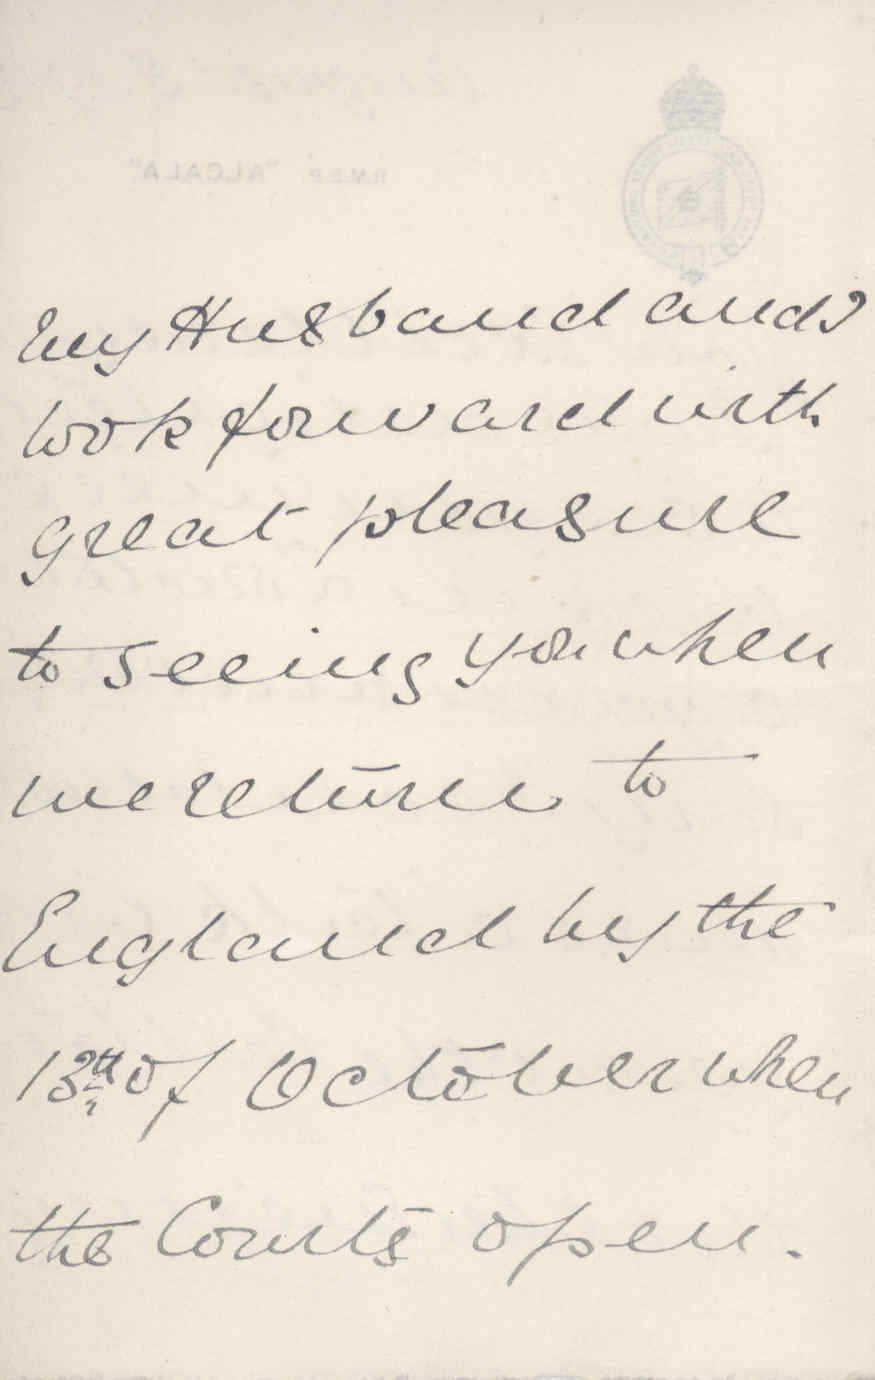 My Husband and I
look forward with
great pleasure
to seeing you when
we return to
England by the
13th of October when
the Courts open.